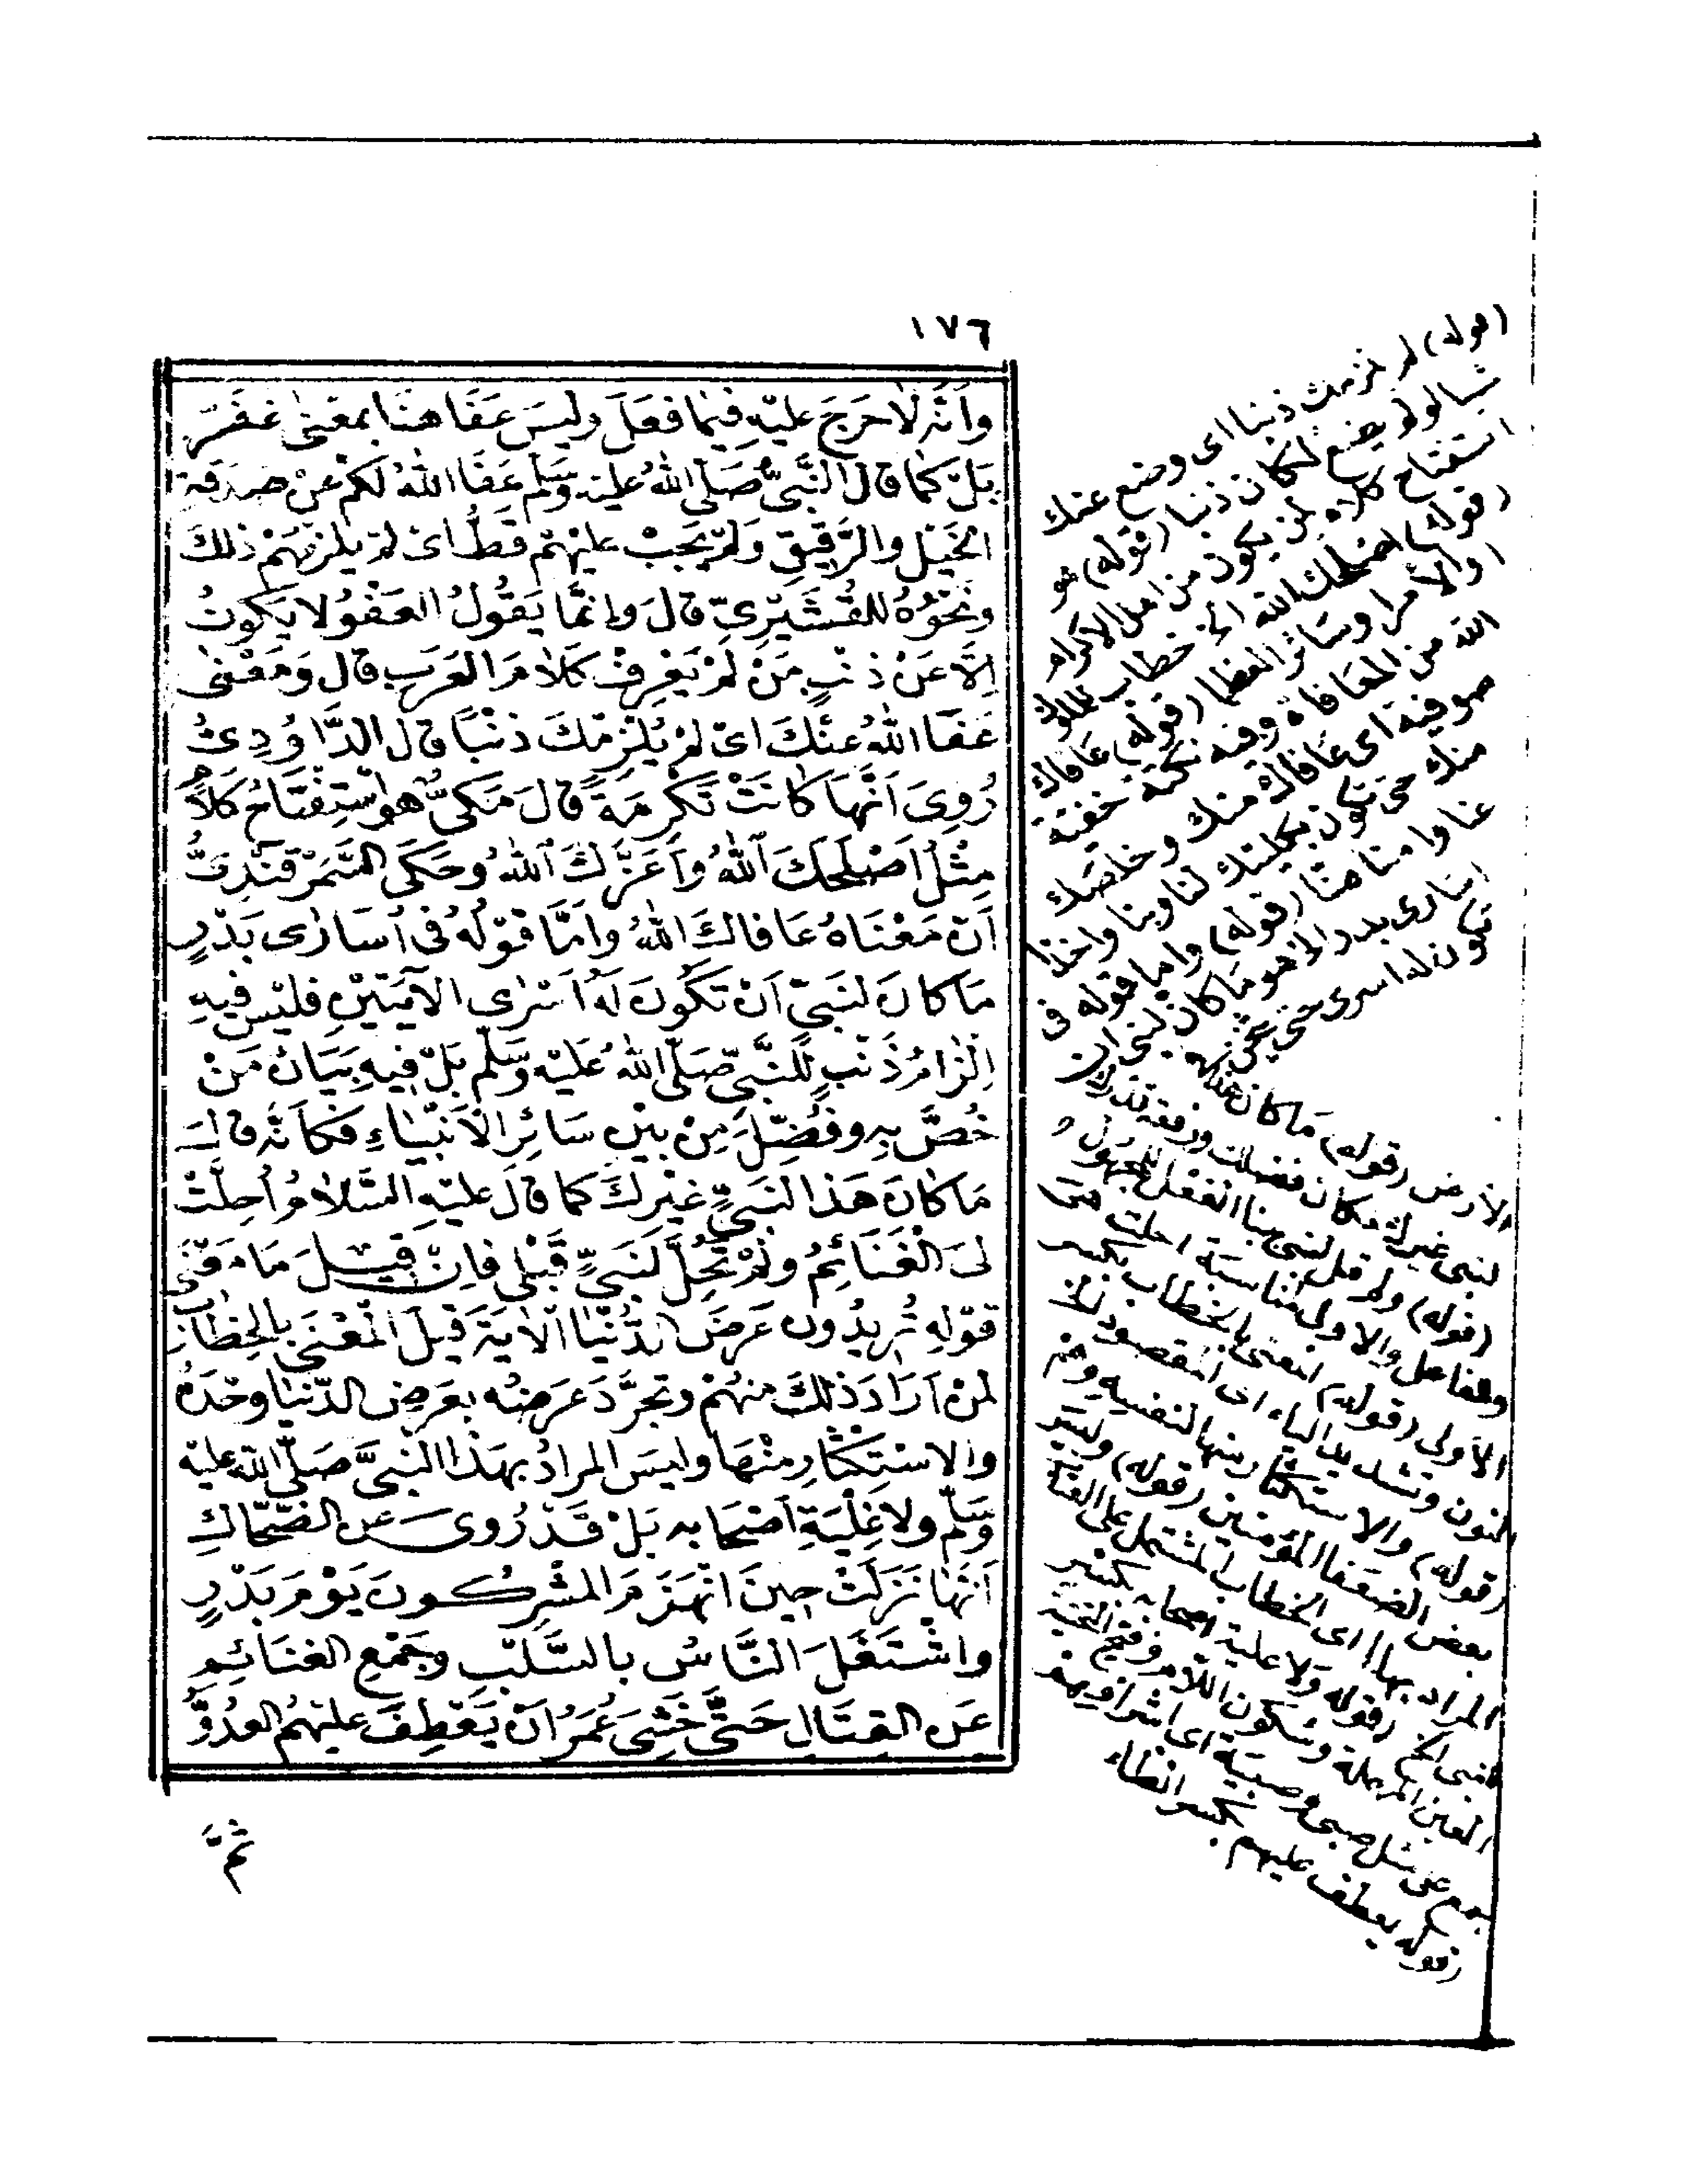 ١٧٦
وَأَنَّهُ لَا حَرَجَ عَلَيْهِ فِيمَا فَعَلَ وَلَيْسَ عَفَا هُنَا بِمَعْنَى غَفَرَ
بَلْ كَمَا قَالَ النَّبِيُّ صَلَّى اللّٰهُ عَلَيْهِ وَسَلَّمَ عَفَا اللّٰهُ لَكُمْ عَنْ صَدَقَةِ
الْخَيْلِ وَالرَّقِيقِ وَلَمْ يَجِبْ عَلَيْهِمْ قَطُّ اَىْ لَمْ يَلْزَمْهُمْ ذٰلِكَ
وَنَحْوُهُ لِلْقُشَيْرِىِّ قَالَ وَاِنَّمَا يَقُولُ الْعَفْوُ لَا يَكُونُ
اِلَّا عَنْ ذَنْبٍ مَنْ لَمْ يَعْرِفْ كَلَامَ الْعَرَبِ قَالَ وَمَعْنٰى
عَفَا اللّٰهُ عَنْكَ اَىْ لَمْ يُلْزِمْكَ ذَنْبًا قَالَ الدَّاوُدِىُّ
رُوِىَ اَنَّهَا كَانَتْ تَكْرِمَةً قَالَ مَكِّىٌّ هُوَ اسْتِفْتَاحُ كَلَامٍ
مِثْلُ اَصْلَحَكَ اللّٰهُ وَاَعَزَّكَ اللّٰهُ وَحَكَى السَّمَرْقَنْدِىُّ
اَنَّ مَعْنَاهُ عَافَاكَ اللّٰهُ وَاَمَّا قَوْلُهُ فِى اُسَارٰى بَدْرٍ
مَا كَانَ لِنَبِىٍّ اَنْ تَكُونَ لَهُ اَسْرٰى الْآيَتَيْنِ فَلَيْسَ فِيهِ
اِلْزَامُ ذَنْبٍ لِلنَّبِىِّ صَلَّى اللّٰهُ عَلَيْهِ وَسَلَّمَ بَلْ فِيهِ بَيَانُ مَنْ
خُصَّ بِهِ وَفُضِّلَ مِنْ بَيْنِ سَائِرِ الْاَنْبِيَاءِ فَكَاَنَّهُ قَالَ
مَا كَانَ هَذَا لِنَبِىٍّ غَيْرِكَ كَمَا قَالَ عَلَيْهِ السَّلَامُ اُحِلَّتْ
لِىَ الْغَنَائِمُ وَلَمْ تَحِلَّ لِنَبِىٍّ قَبْلِى فَاِنْ قِيلَ مَا مَعْنٰى
قَوْلِهِ تُرِيدُونَ عَرَضَ الدُّنْيَا الْاٰيَةَ قِيلَ الْمَعْنَىُّ بِالْخِطَابِ
لِمَنْ اَرَادَ ذٰلِكَ مِنْهُمْ وَتَجَرَّدَ غَرَضُهُ بِعَرَضِ الدُّنْيَا وَحْدَهُ
وَالِاسْتِكْثَارِ مِنْهَا وَلَيْسَ الْمُرَادُ بِهَذَا النَّبِىَّ صَلَّى اللّٰهُ عَلَيْهِ
وَسَلَّمَ وَلَا عِلْيَةِ اَصْحَابِهِ بَلْ قَدْ رُوِىَ عَنِ الضَّحَّاكِ
اَنَّهَا نَزَلَتْ حِينَ انْهَزَمَ الْمُشْرِكُونَ يَوْمَ بَدْرٍ
وَاشْتَغَلَ النَّاسُ بِالسَّلَبِ وَجَمْعِ الْغَنَائِمِ
عَنِ الْقِتَالِ حَتَّى خَشِىَ عُمَرُ اَنْ يَعْطِفَ عَلَيْهِمُ الْعَدُوُّ
ثُمَّ
(قوله) لم يلزمك ذنبا اى وضع عنك
شيا لو لم يضع لكان ذنبا (قوله) هو
استفتاح كلام
(قوله) اصلحك الله الخ خطاب للملوك
والامرا وسائر العظما (قوله) عافاك
الله من المعافاه وفيه نكتة خفية
صوفية اى عافاك منك وخلصك
منك حتى تكون بكليتك لنا وبنا واخذا
عنا وامنا هنا (قوله) واما قوله فى
اسارى بدر الخ هو ما كان لنبى ان
تكون له اسرى حتى يثخن فى
الارض (قوله) ما كان هذا
لنبى غيرك
(قوله) ولم تحل لنبى بنا الفعل للمجهول و
والفاعل والاولى مناسبة احلت
الاولى (قوله) المعنى بالخطاب بكسر
النون وتشديد الياء اى المقصود
(قوله) والاستكثار منها لنفسه وهم
بعض الضعفا المؤمنين (قوله) وليس
المراد بهذا اى الخطاب المشتمل على
النبى الخ (قوله) ولا علية اصحابه بكسر
العين المهملة وسكون اللام وفتح التحتية
جمع على مثل صبى وصبية اى اشرافهم
(قوله) يعطف عليهم بكسر الطاء